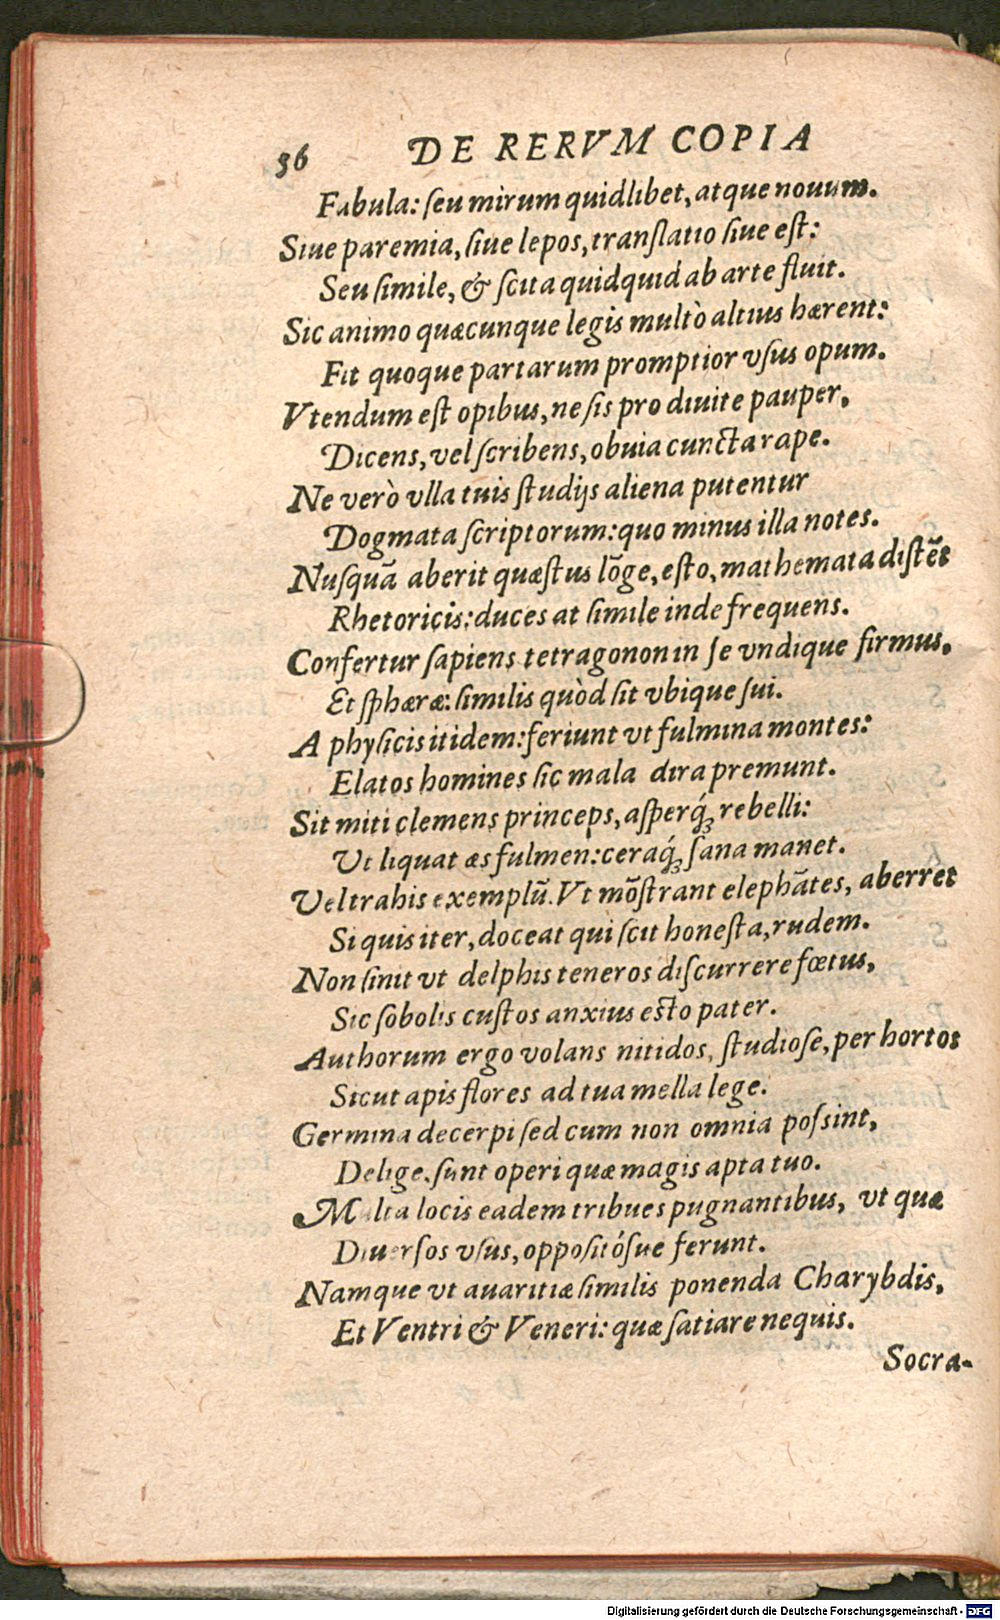 36 DE RERVM COPIA
Fabula: ſeu mirum quidlibet, atque nouum.
Siue paremia, ſiue lepos, tranſlatio ſiue eſt:
Seu ſimile, & ſcita quidquid ab arte fluit.
Sic animo quæcunque legis multò altius hærent:
Fit quoque partarum promptior vſus opum.
Vtendum eſt opibus, ne ſis pro diuite pauper,
Dicens, vel ſcribens, obuia cuncta rape.
Ne verò vlla tuis ſtudijs aliena putentur
Dogmata ſcriptorum: quo minus illa notes.
Nuſquā aberit quæſtus lōge, eſto, mathemata diſtēt
Rhetoricis: duces at ſimile inde frequens.
Confertur ſapiens tetragonon in ſe vndique firmus,
Et ſphæræ: ſimilis quòd ſit vbique ſui.
A phyſicis itidem: feriunt vt fulmina montes:
Elatos homines ſic mala dira premunt.
Sit miti clemens princeps, aſperq́ꝫ rebelli:
Vt liquat æs fulmen: ceraq́ꝫ ſana manet.
Vel trahis exemplū. Vt mōſtrant elephātes, aberret
Si quis iter, doceat qui ſcit honeſta, rudem.
Non ſinit vt delphis teneros diſcurrere fœtus,
Sic ſobolis cuſtos anxius eſto pater.
Authorum ergo volans nitidos, ſtudioſe, per hortos
Sicut apis flores ad tua mella lege.
Germina decerpi ſed cum non omnia poſsint,
Delige. ſunt operi quæ magis apta tuo.
Multa locis eadem tribues pugnantibus, vt quæ
Diuerſos vſus, oppoſitóſue ferunt.
Namque vt auaritiæ ſimilis ponenda Charybdis,
Et Ventri & Veneri: quæ ſatiare nequis.
Socra-
Digitalisierung gefördert durch die Deutsche Forschungsgemeinschaft - DFG